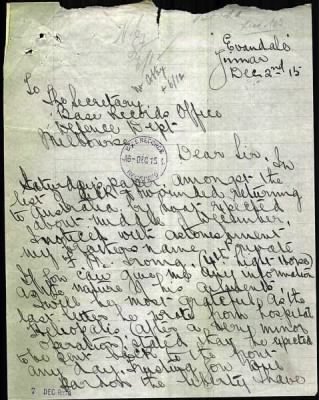 "Evandale"
Dec 2nd 15
To
The Secretary
Base Records Office
Defence Dept
Melbourne
Dear Sir, In
Saturday's paper amongst the
list of wounded returning
to Australia
about middle December,
I noticed with astonishment
my brother's name, Private
Irving, (4th Light Horse)
If you can give me any information
as to nature of his
I shall be most grateful, as the
last letter he wrote from hospital
Heliopolis, (after a very minor
operation) stated that he expected
to be sent back to the front
any day. Trusting you will
pardon the liberty I have
7 DEC